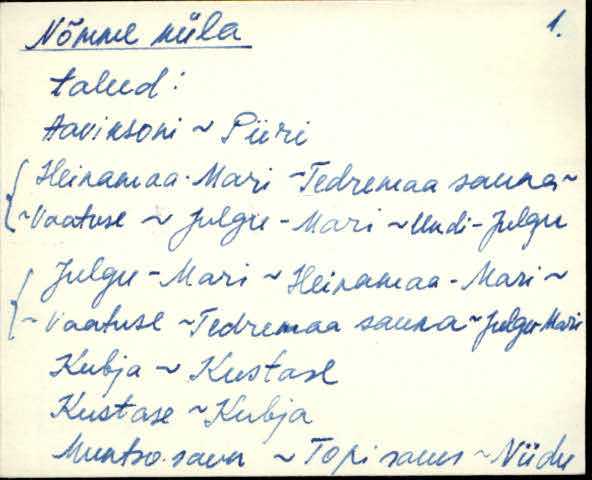 Nõmme küla 1.
talud:
Aaviksoni ~ Piiri
Heinamaa-Mari ~ Tedremaa sauna ~
~ Vaatuse ~ Julgu-Mari ~ Uudi-Julgu
Julgu-Mari ~ Heinamaa-Mari ~
~ Vaatuse ~ Tedremaa sauna ~ Julgu-Mari
Kubja ~ Kustase
Kustase ~ Kubja
~ Topi saun ~ Niidu